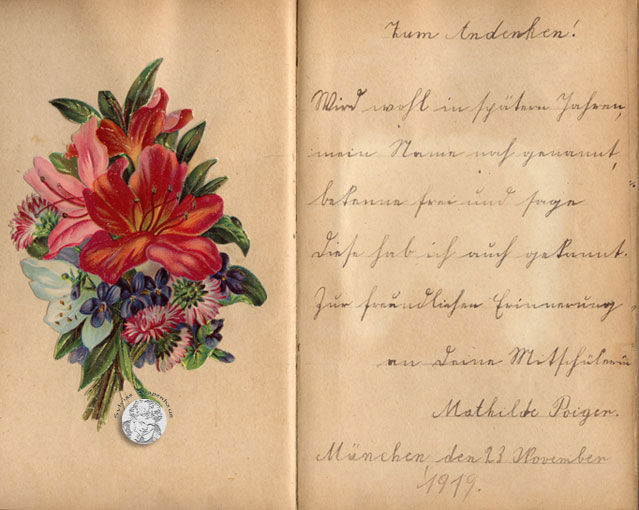 Zum Andenken!
Wird wohl in spätern Jahren,
mein Name noch genannt,
bekenne frei und sage
diese hab ich auch gekannt.
Zur freundlichen Erinnerung
an deine Mitschülerin
Mathilde Poiger.
München, den 23 November
1919.